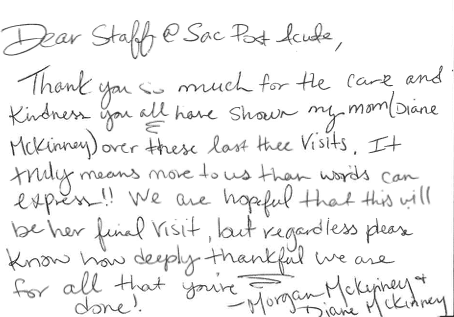 Dear Staff @ Sac Post Acute,
Thank you so much for the care and
kindness you all have shown my mom (Diane
McKinney) over these last thee visits. It
truly means more to us than words can
express!! We are hopeful that this will
be her final visit, but regardless please
know how deeply thankful we are
for all that you've
done! - Morgan McKinney &
Diane McKinney